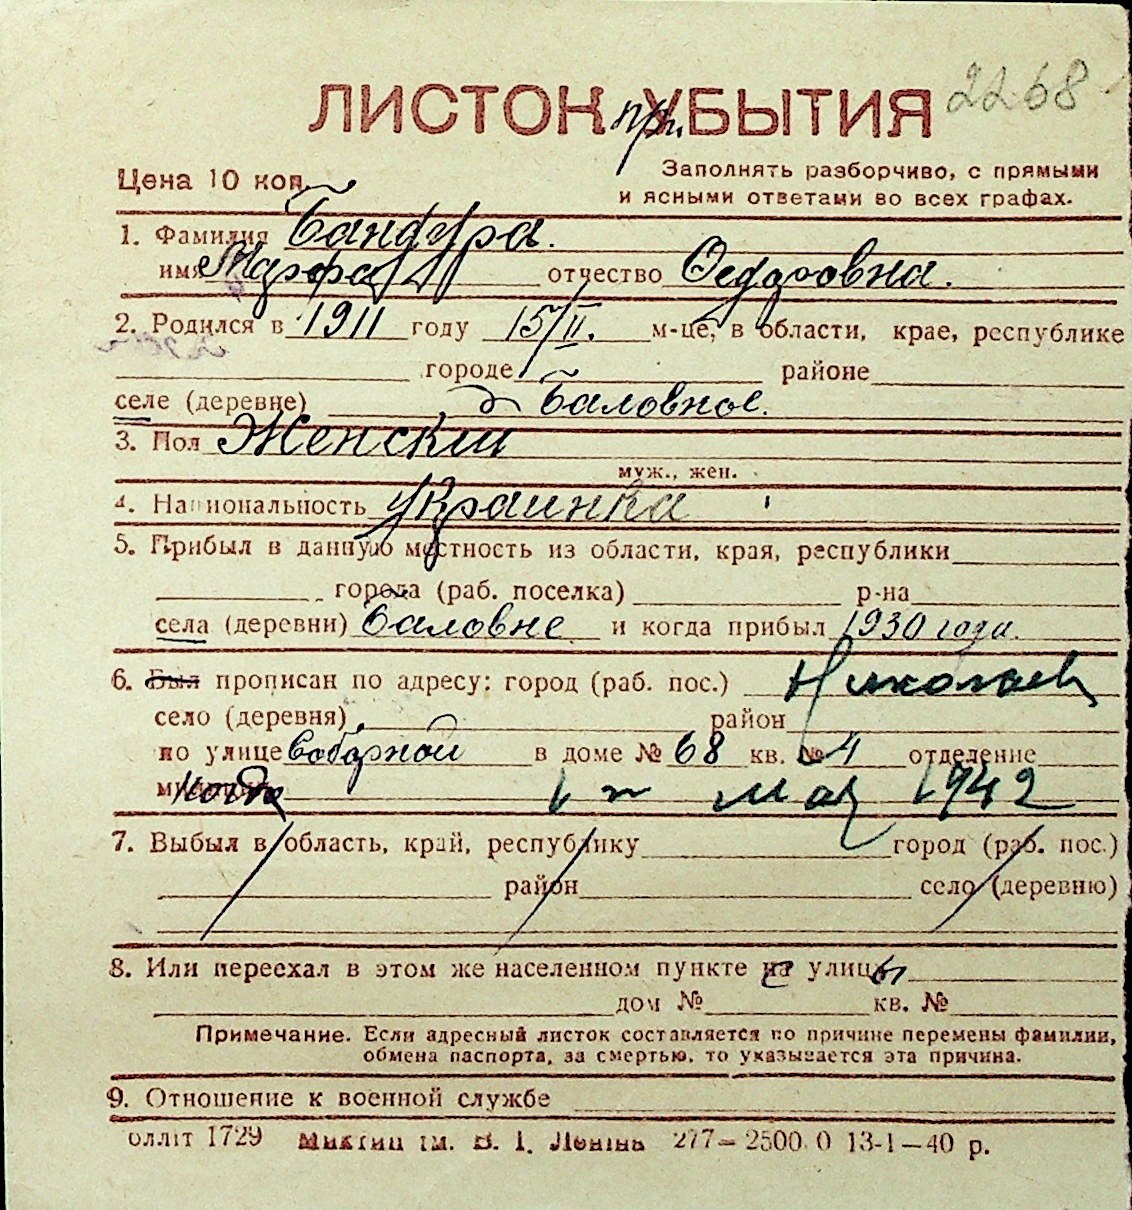 2268
ЛИСТОК при УБЫТИЯ
Цена 10 коп.
Заполнять разборчиво, с прямыми
и ясными ответами во всех графах.
1. Фамилия Бандура.
имя Марфа отчество Федоровна.
2. Родился в 1911 году 15/II. м-це, в области, крае, республике
городе районе
селе (деревне) Баловное.
3. Пол Женский
муж., жен.
4. Национальность Украинка
5. Прибыл в данную местность из области, края, республики
города (раб. поселка) р-на
села (деревни) Баловне и когда прибыл 1930 года.
6. Был прописан по адресу: город (раб. пос.) Николаев
село (деревня) район
по улице Соборной в доме № 68 кв. № 4 отделение
милиции когда 1 мая 1942
7. Выбыл в область, край, республику город (раб. пос.)
район село (деревню)
8. Или переехал в этом же населенном пункте с улицы
дом № кв. №
Примечание. Если адресный листок составляется по причине перемены фамилии,
обмена паспорта, за смертью, то указывается эта причина.
9. Отношение к военной службе
олліт 1729 Миктип ім. В. І. Леніна 277—2500.0 13-1—40 р.